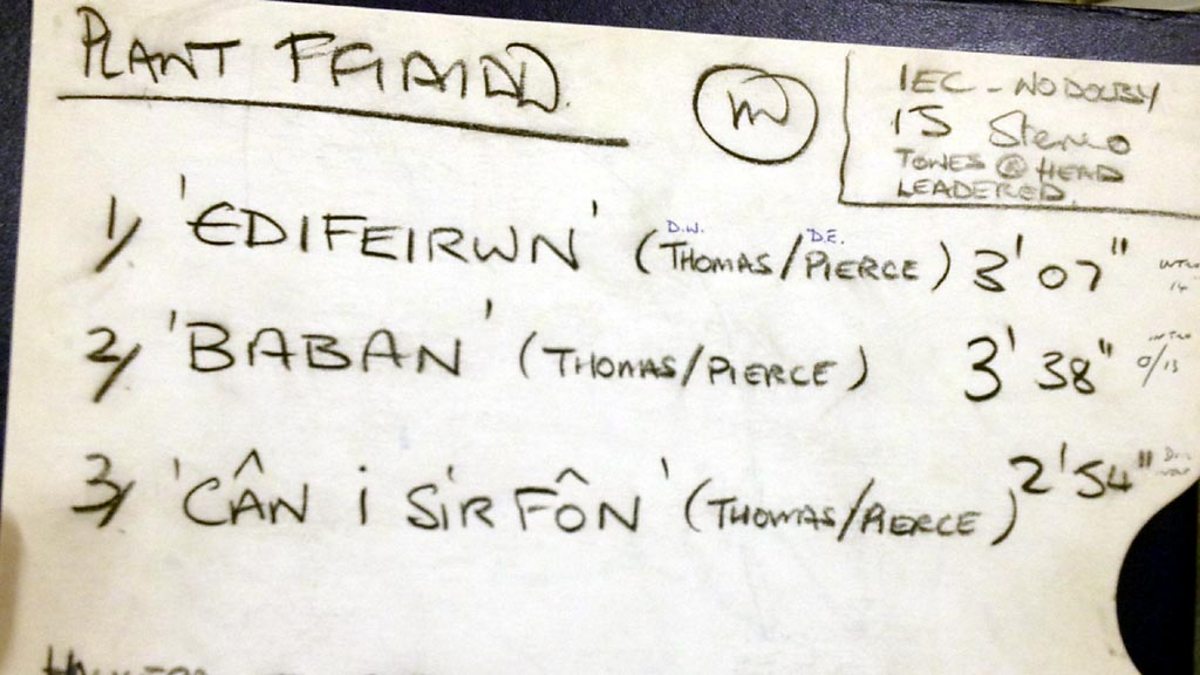 PLANT FFIAIDD.
IEC - NO DOLBY
15 Stereo
TONES @ HEAD
LEADERED.
D.W. D.E.
1/ 'EDIFEIRWN' (THOMAS/PIERCE) 3'07" INTRO
14
2/ 'BABAN' (THOMAS/PIERCE) 3'38" INTRO
0/13
3/ 'CÂN I SIR FÔN' (THOMAS/PIERCE) 2'54"